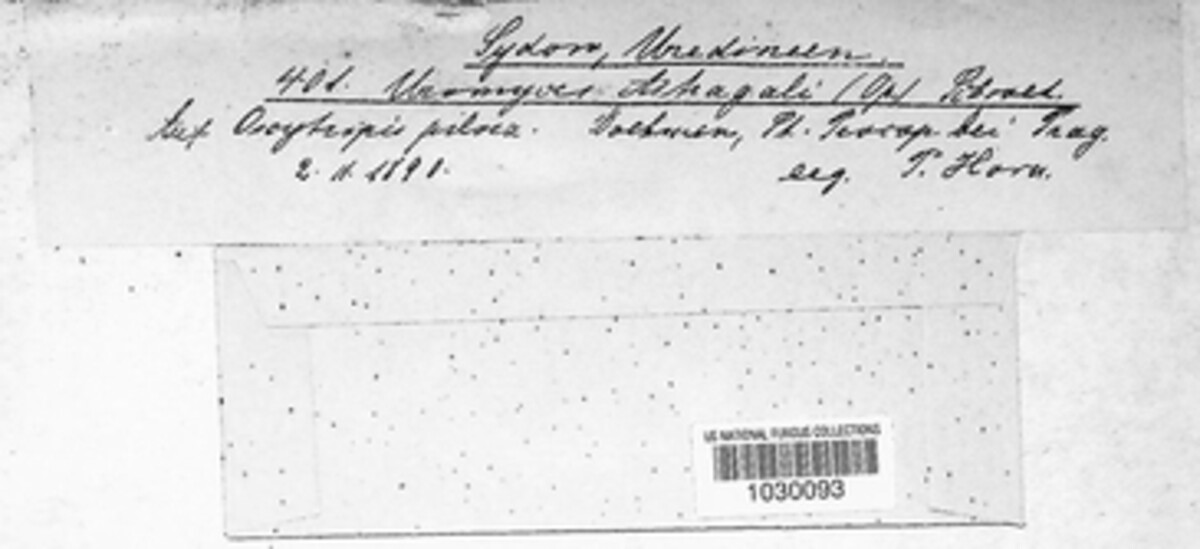 Sydow, Uredineen.
401. Uromyces Astragali (Op) Schroet.
Auf Oxytropis pilosa. Boehmen, bei Prag.
2. 1890. leg. P. Hora.
US NATIONAL FUNGUS COLLECTIONS
1030093